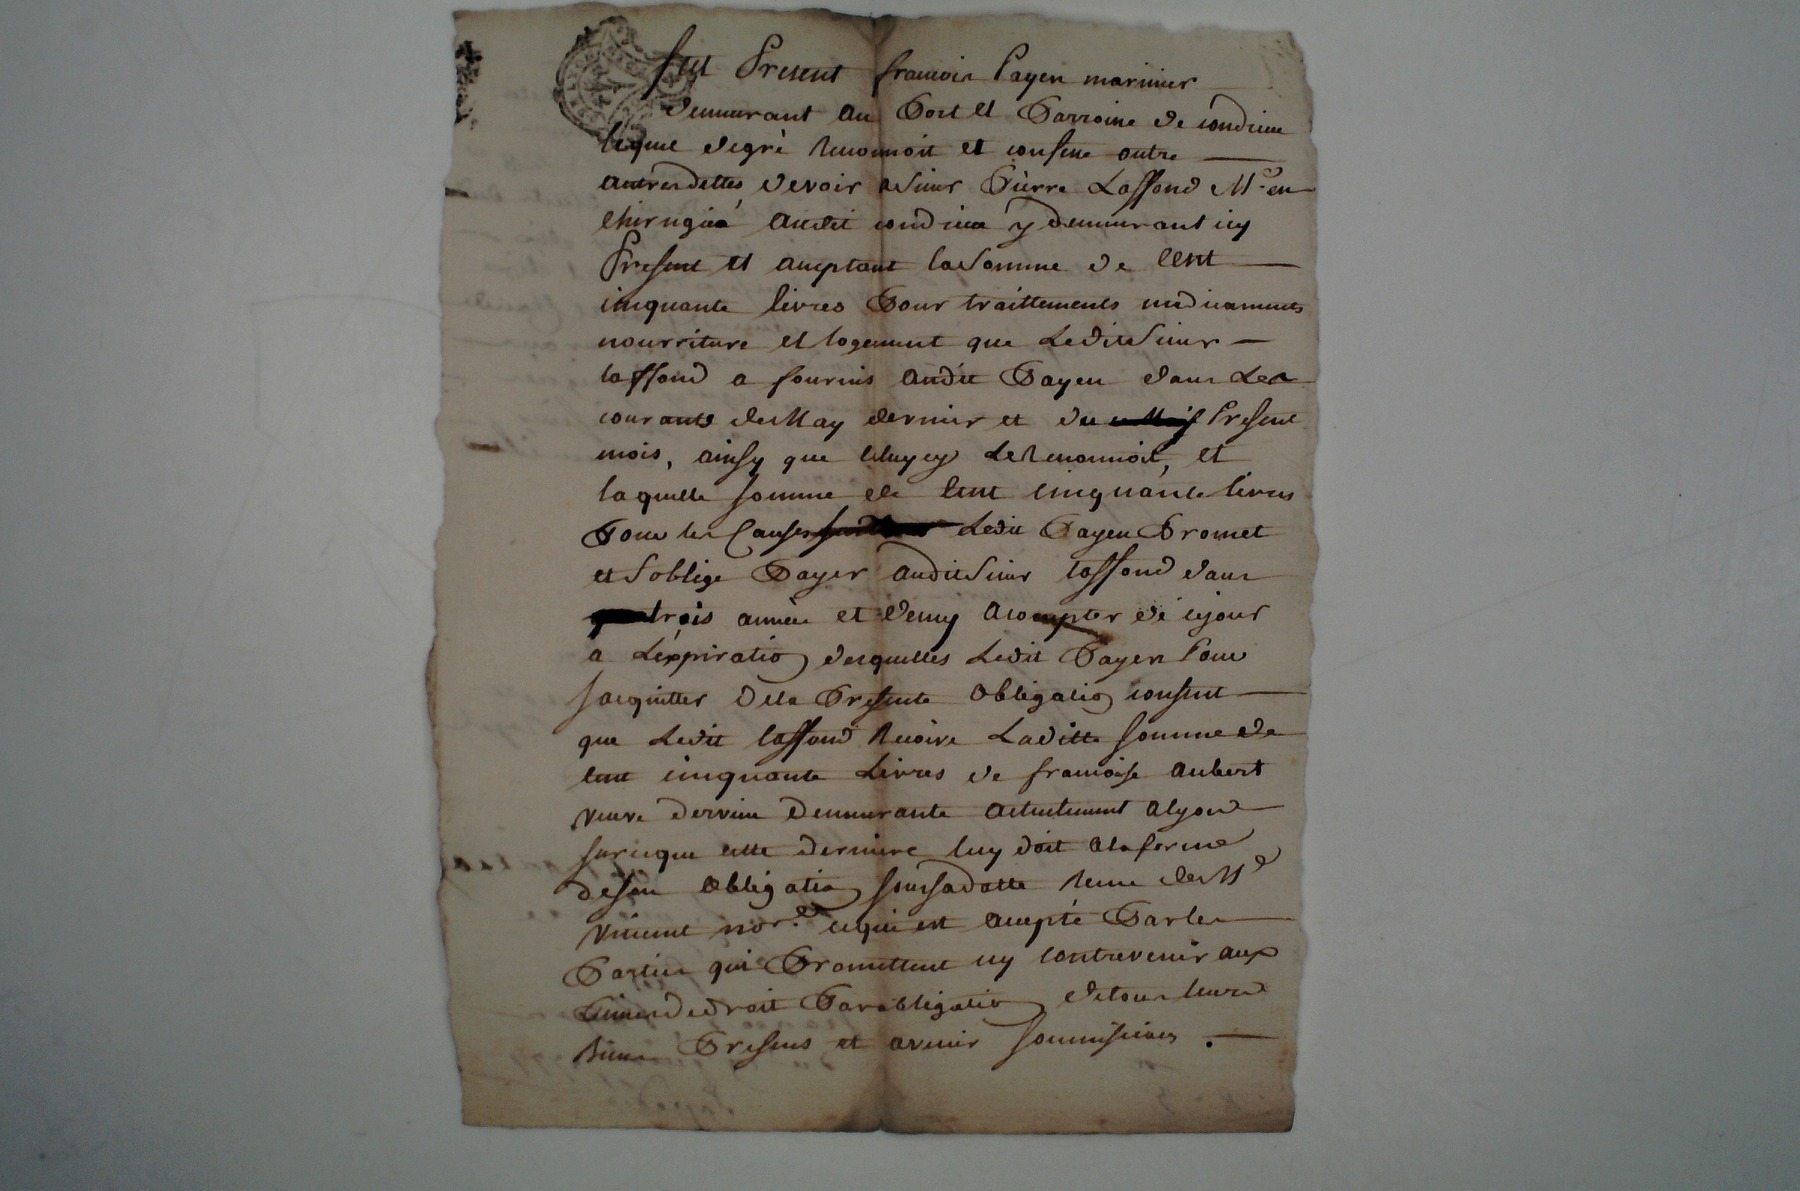 fut Present francois Payen marinier
demeurant au Port et Parroisse de condrieu
lequel degrè reconnoit et confesse outre
autres dettes devoir asieur Pierre Laffond Me en
chirugiea audit condrieu y demeurant icy
Present et aceptant lasomme de cent
cinquante livres Pour traittements medicaments
nourriture et logement que Leditsieur
laffond a fournis audit Payen dans Les
courants deMay dernier et du Present
mois, ainsy que celuycy Le Reconnoit, et
laquelle somme de Cent cinquante livres
Pour les Causes Ledit Payen Promet
et soblige Payer auditsieur laffond dans
trois année et demy acompter de cejour
a Léxpiratio desquelles Ledit Payen Pour
sacquitter dela Presente obligatio consent
que Ledit laffond Recoive Laditte somme de
cent cinquante Livres de francoise aubert
veuve dervieu demeurante actuelement alyon
surceque cette derniere luy doit alaforme
deson obligatio soussadatte Recue deM
vincent nore cequi est acepté Parles
Parties qui Promettent ny contrevenir aux
Peines dedroit Parobligatio detous leurs
biens Presens et avenir soumissions .